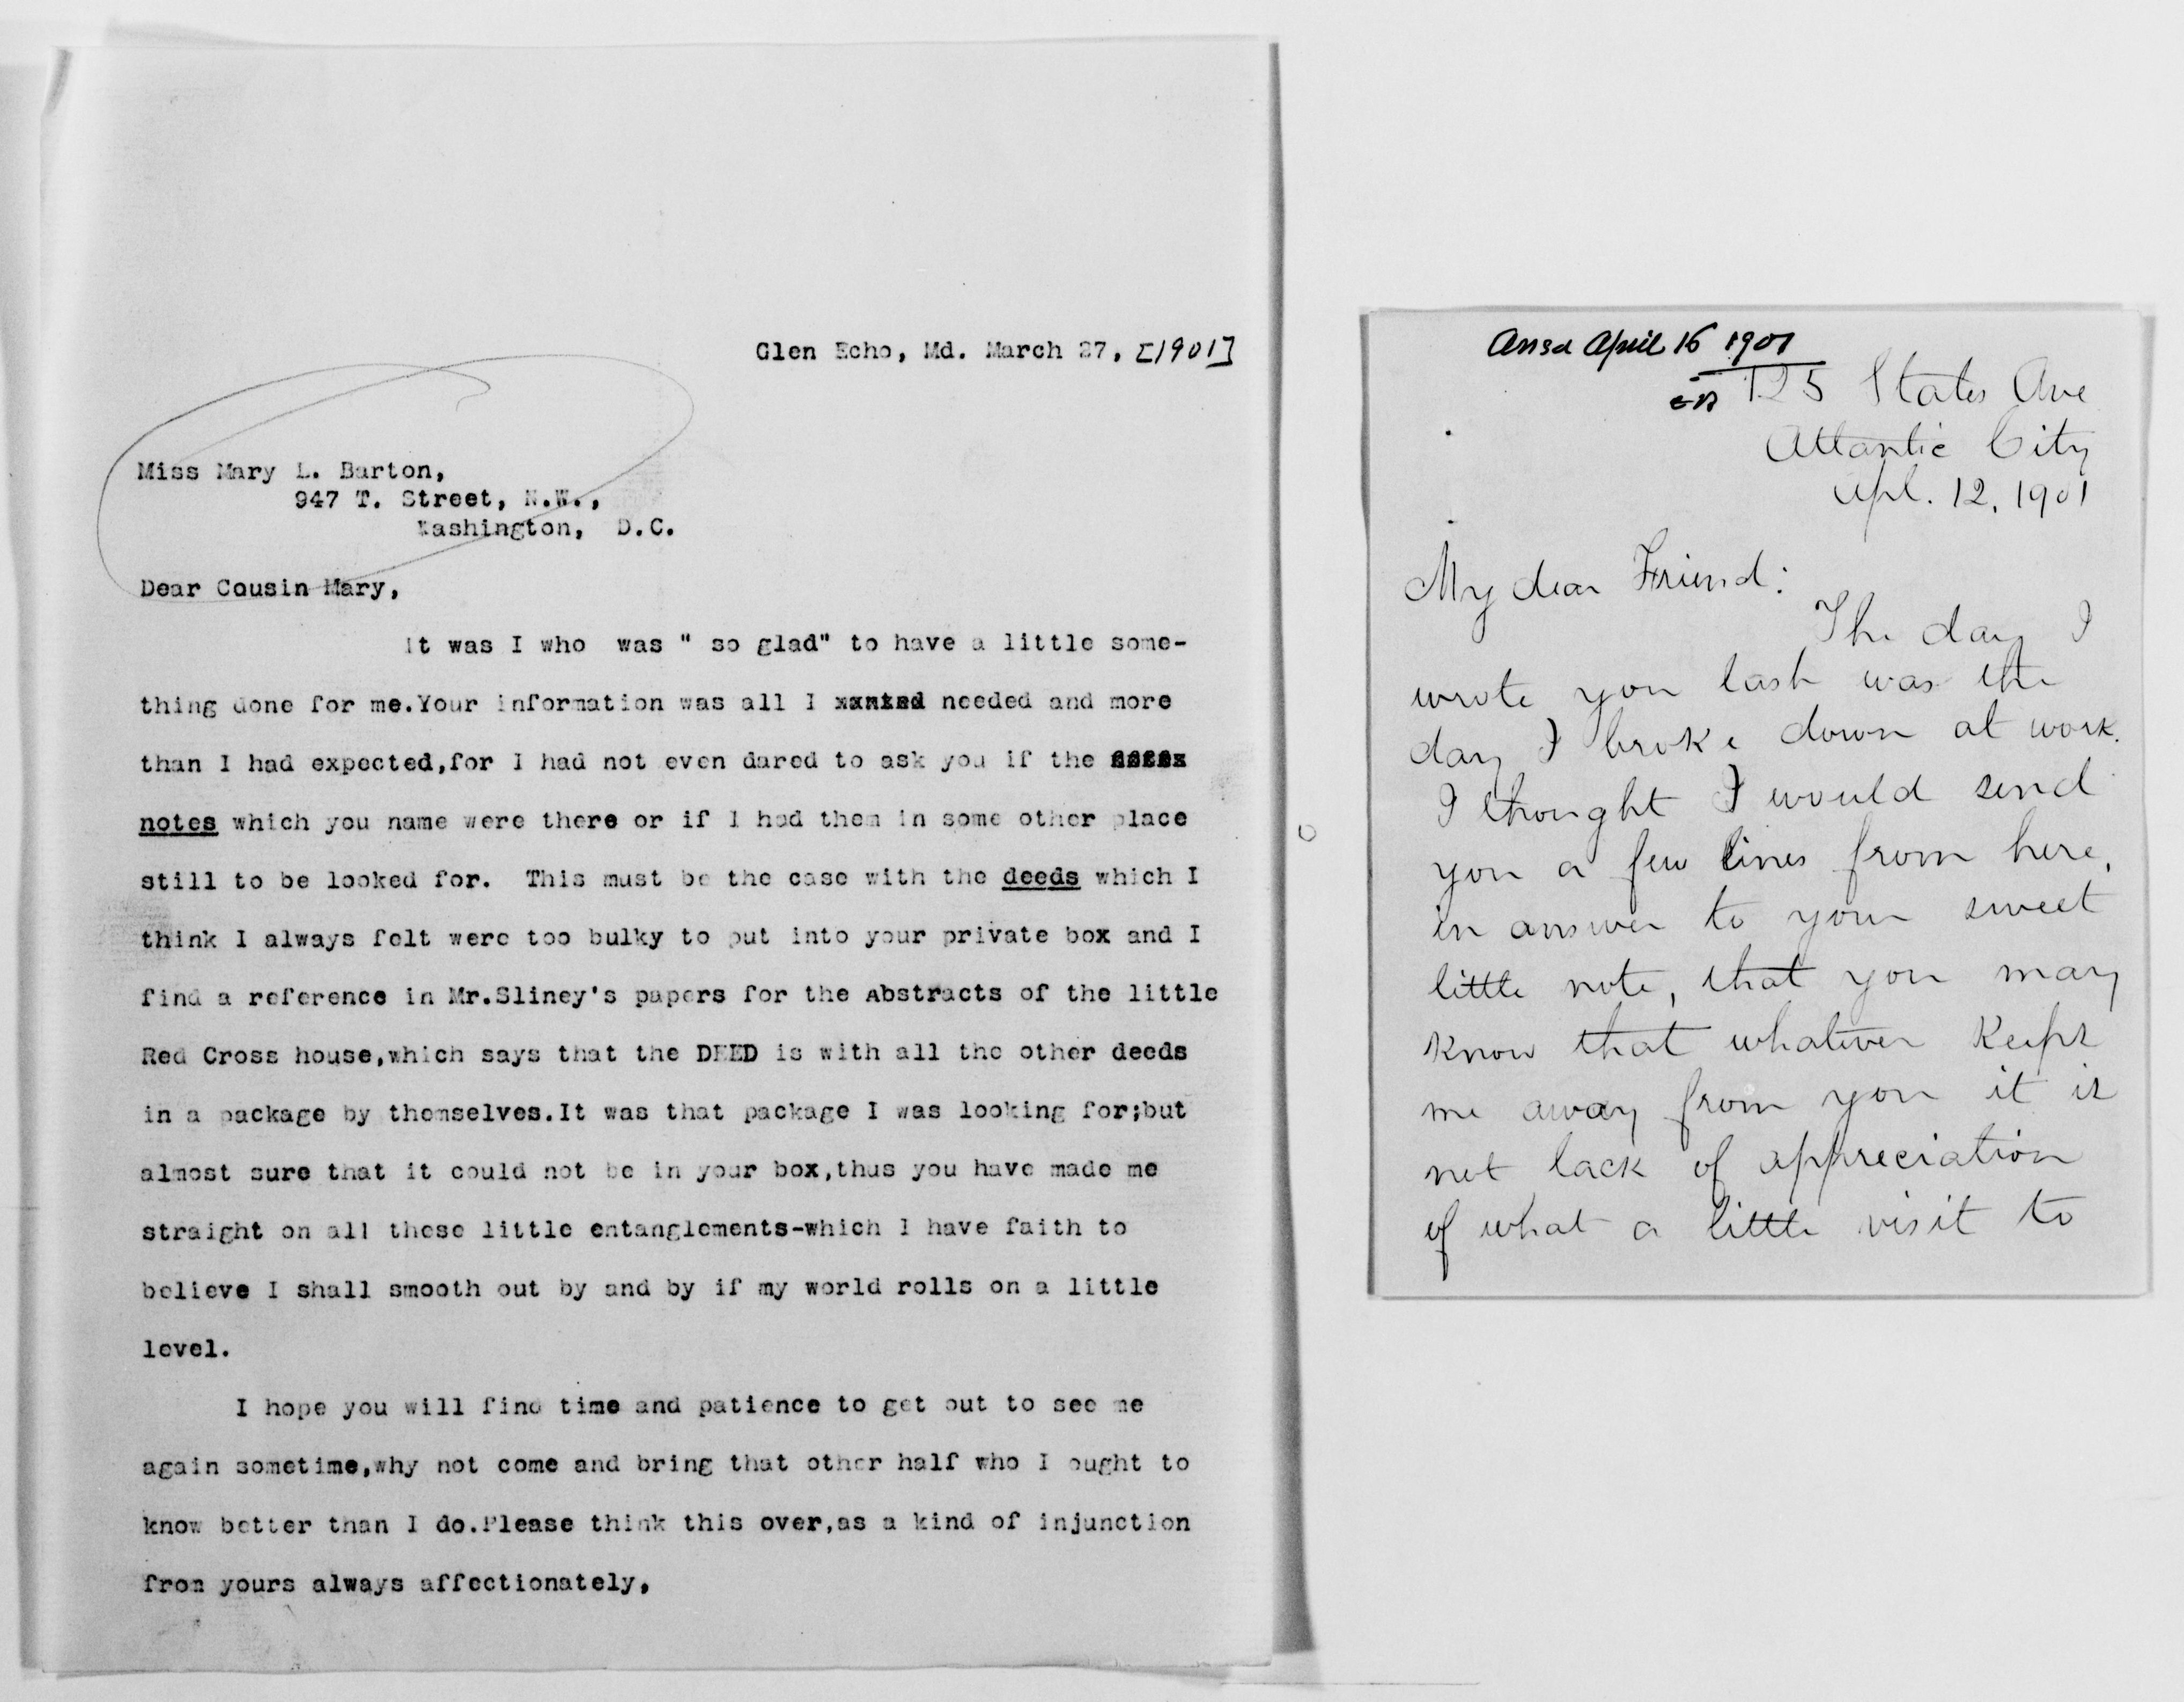 Glen Echo, Md. March 27, [1901]
Miss Mary L. Barton,
947 T. Street, N.W.,
Washington, D.C.
Dear Cousin Mary,
It was I who was " so glad" to have a little some-
thing done for me.Your information was all I wanted needed and more
than I had expected,for I had not even dared to ask you if the
notes which you name were there or if I had them in some other place
still to be looked for. This must be the case with the deeds which I
think I always felt were too bulky to put into your private box and I
find a reference in Mr.Sliney's papers for the Abstracts of the little
Red Cross house,which says that the DEED is with all the other deeds
in a package by themselves.It was that package I was looking for;but
almost sure that it could not be in your box,thus you have made me
straight on all these little entanglements-which I have faith to
believe I shall smooth out by and by if my world rolls on a little
level.
I hope you will find time and patience to get out to see me
again sometime,why not come and bring that other half who I ought to
know better than I do.Please think this over,as a kind of injunction
from yours always affectionately,
Ansd April 16 1901
125 States Ave
Atlantic City
Apl. 12, 1901
My dear Friend:
The day I
wrote you last was the
day I broke down at work.
I thought I would send
you a few lines from here,
in answer to your sweet
little note, that you may
know that whatever keeps
me away from you it is
not lack of appreciation
of what a little visit to